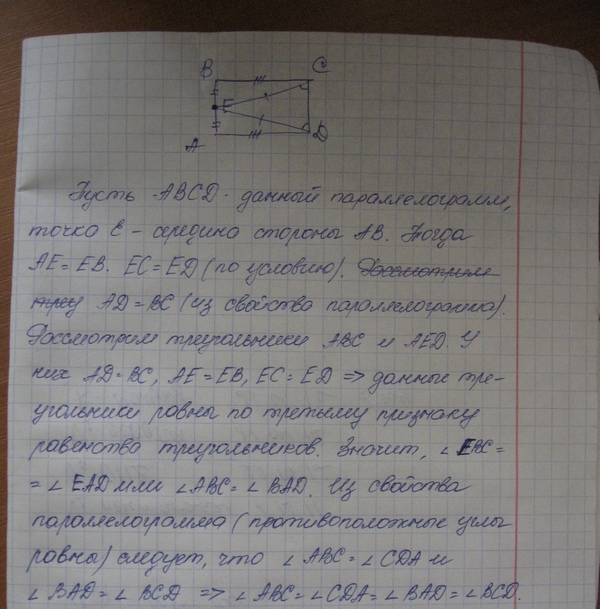 B C
E
A D
Пусть ABCD - данный параллелограмм,
точка E - середина стороны AB. Тогда
AE = EB. EC = ED (по условию). Рассмотрим
треу AD = BC (из свойства параллелограмма).
Рассмотрим треугольники ABC и AED. У
них AD = BC, AE = EB, EC = ED => данные тре-
угольники равны по третьему признаку
равенства треугольников. Значит, ∠ EBC =
= ∠ EAD или ∠ ABC = ∠ BAD. Из свойства
параллелограмма (противоположные углы
равны) следует, что ∠ ABC = ∠ CDA и
∠ BAD = ∠ BCD => ∠ ABC = ∠ CDA = ∠ BAD = ∠ BCD.